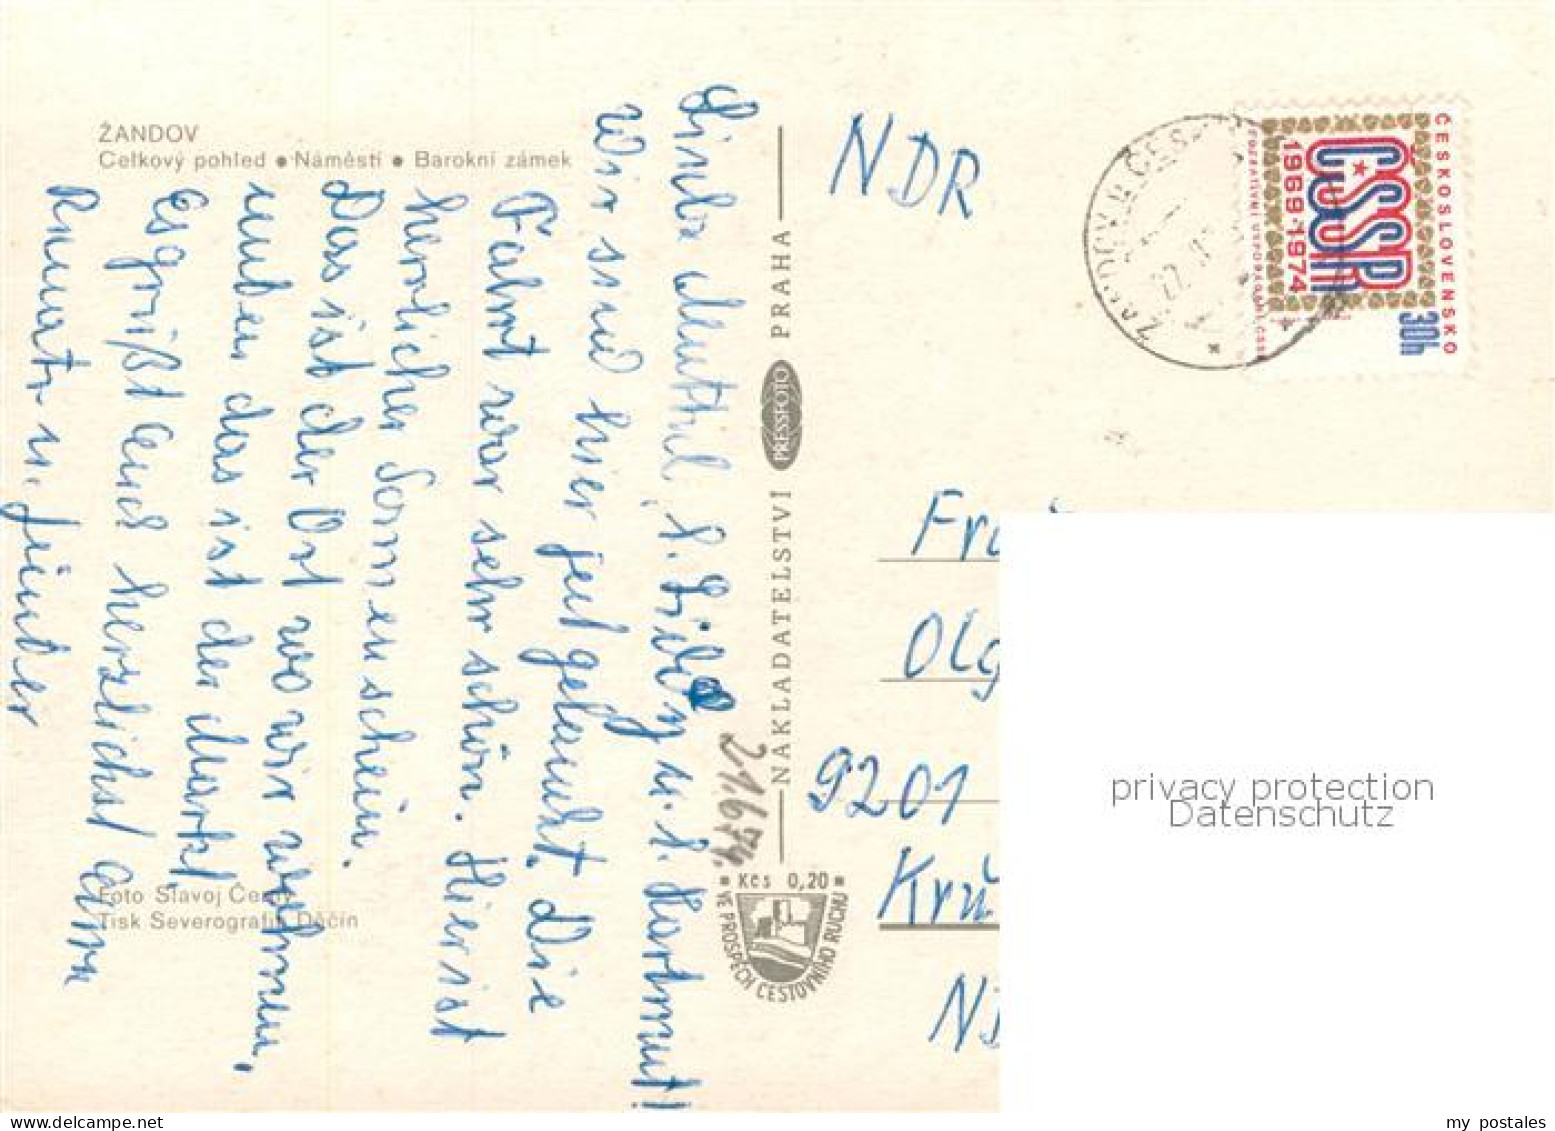 ŽANDOV
Celkový pohled • Náměstí • Barokní zámek
Liebe Mutti, l. u. l. Hartmut!
Wir sind hier gut gelandet. Die
Fahrt war sehr schön. Hier ist
herrlicher Sonnenschein.
Das ist der Ort wo wir wohnen,
unten das ist der Markt.
Es grüßt euch herzlichst
Renate u. Günter
21.6.74.
Foto Slavoj
Tisk Severografia Děčín
NAKLADATELSTVÍ PRESSFOTO PRAHA
Kčs 0,20
VE PROSPĚCH CESTOVNÍHO RUCHU
NDR
ČESKOSLOVENSKO
ČSSR
1969·1974
30h
9201
privacy protection
Datenschutz
my postales